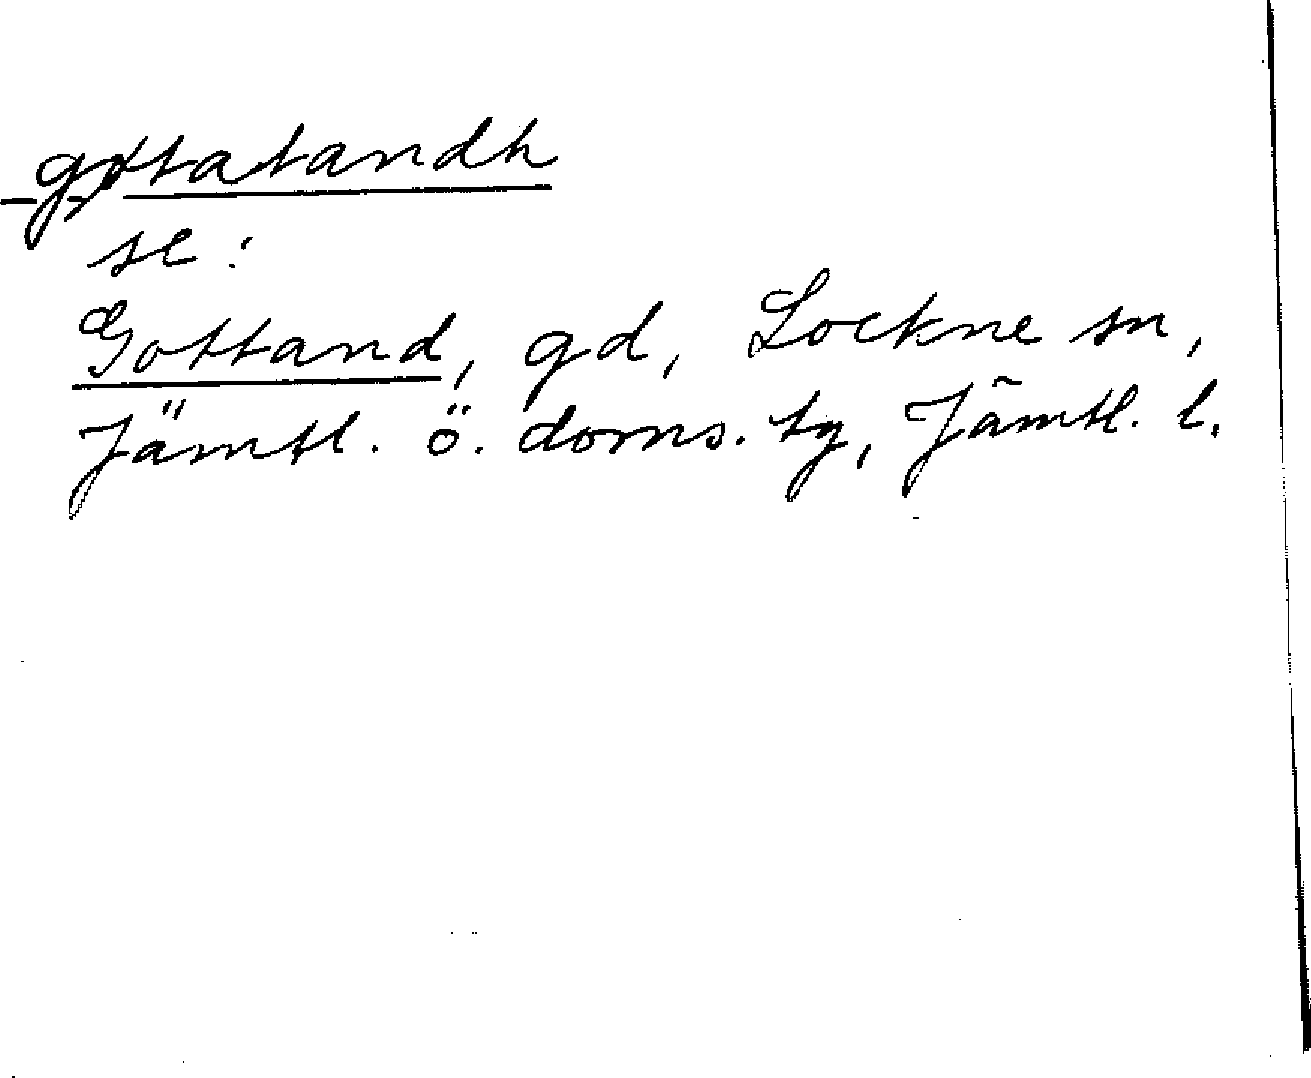 gøtatandh
se:
Gottand, gd, Lockne sn,
Jämtl. ö. doms. tg, Jämtl. l.